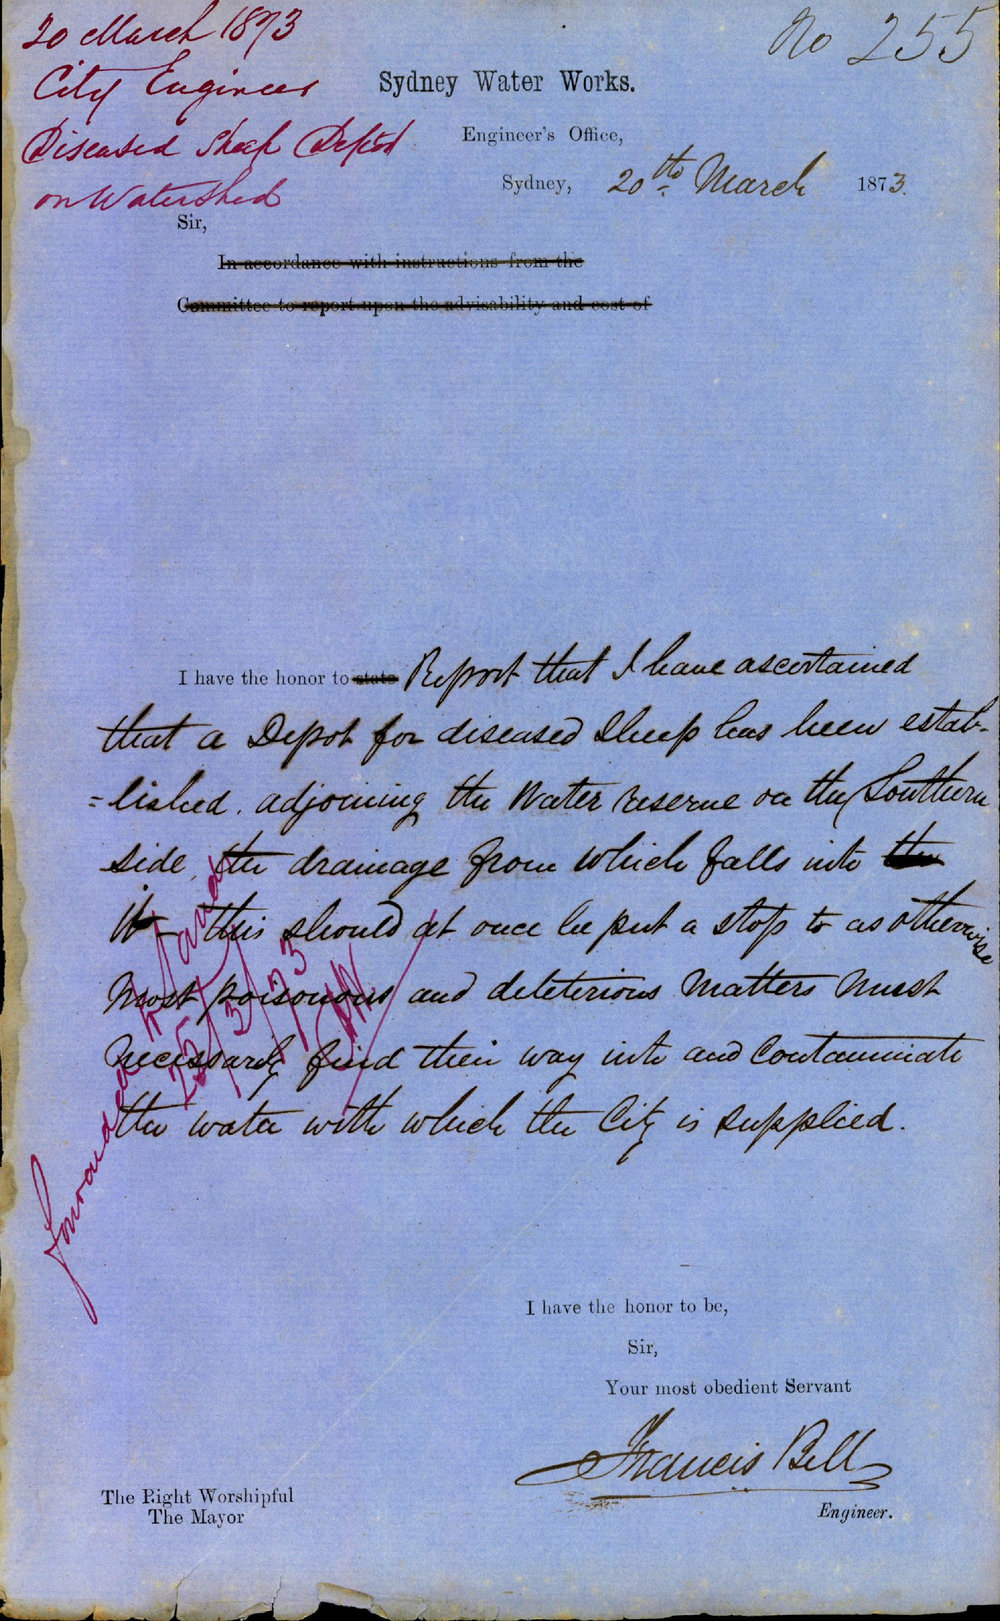 20 March 1873
City Engineer
Diseased Sheep Depôt
on Watershed
No 255
Sydney Water Works.
Engineer's Office,
Sydney, 20th March 1873.
Sir,
In accordance with instructions from the
Committee to report upon the advisability and cost of
I have the honor to state Report that I have ascertained
that a Depot for diseased Sheep has been estab-
=lished. adjoining the Water reserve on the Southern
side, the drainage from which falls into the
it – this should at once be put a stop to as otherwise
most poisonous and deleterious matters must
necessarily find their way into and contaminate
the water with which the City is supplied.
Forwarded
25/3/73
I have the honor to be,
Sir,
Your most obedient Servant
Francis Bell
Engineer.
The Right Worshipful
The Mayor